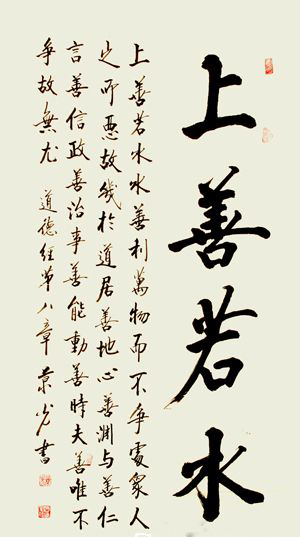 上善若水
上善若水水善利萬物而不爭處衆人
之所惡故幾於道居善地心善淵与善仁
言善信政善治事善能動善時夫善唯不
爭故無尤 道德經第八章 書